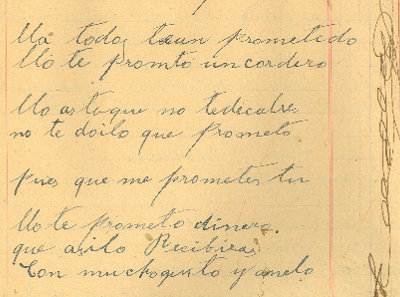 Lla todos tean prometido
Llo te promto un cordero
Llo astaque no tedecalse
no te doilo que prometo
pues que me prometes tu
Llo te prometo dinero
que asilo Recibiras
Con muchogusto y anelo